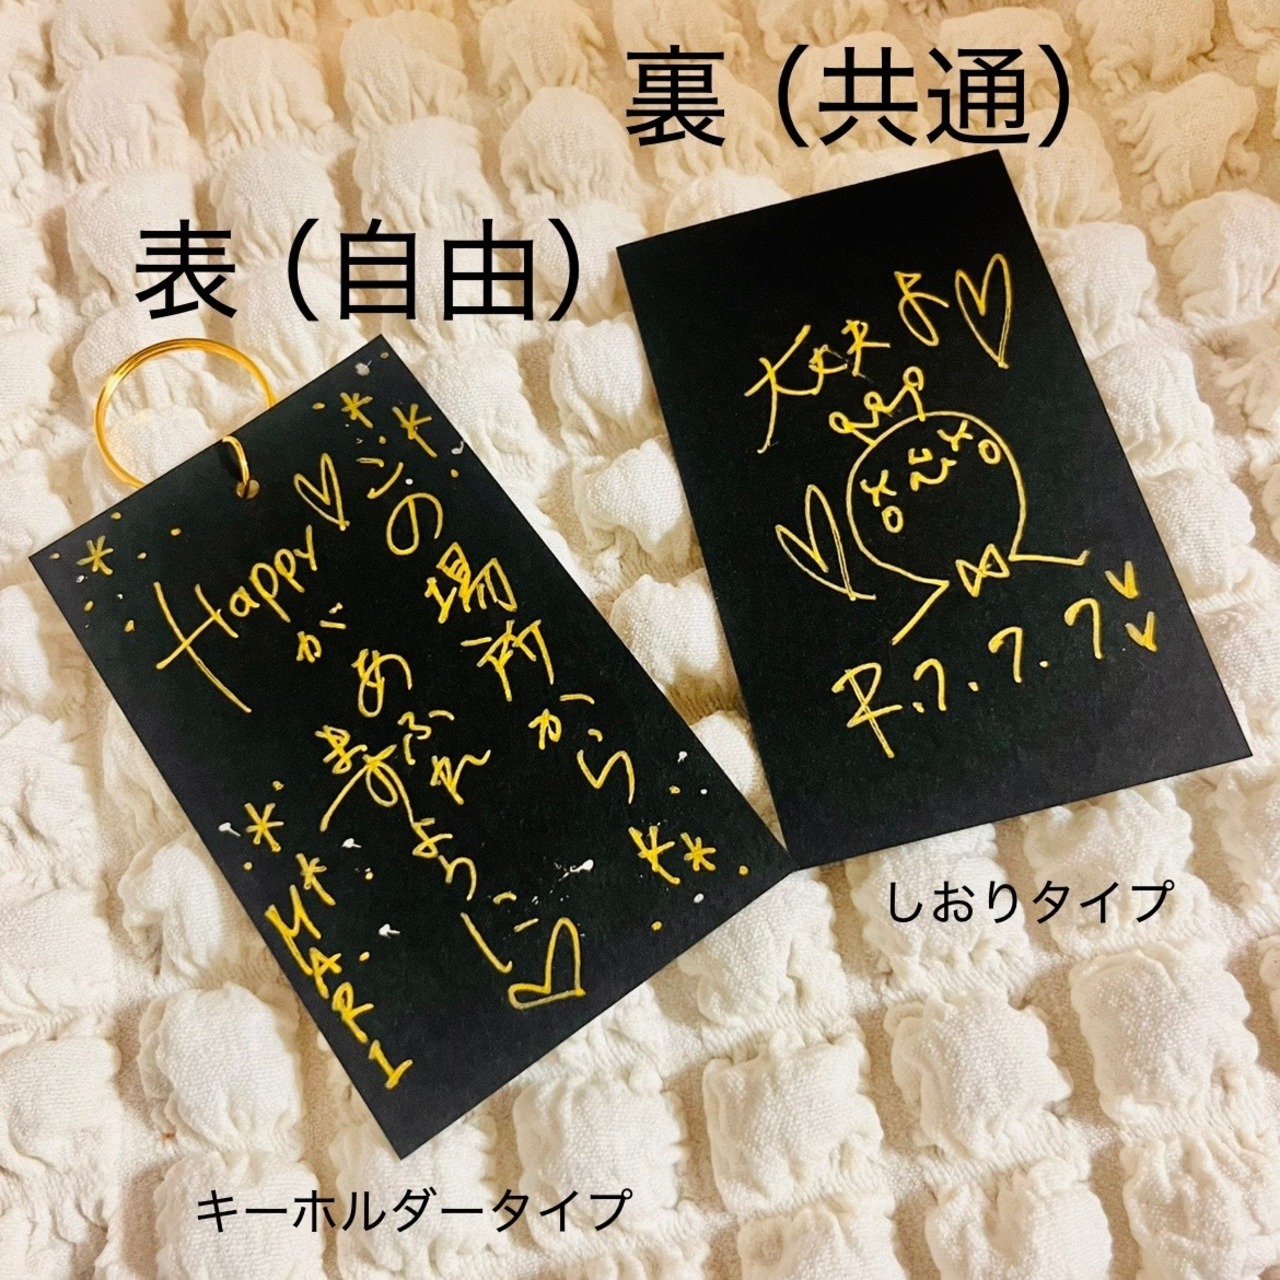 裏（共通）
表（自由）
この場所から
Happy♡
が
あふれ
ますように♡
MARI
大丈夫よ♡
R.7.7.7
しおりタイプ
キーホルダータイプ